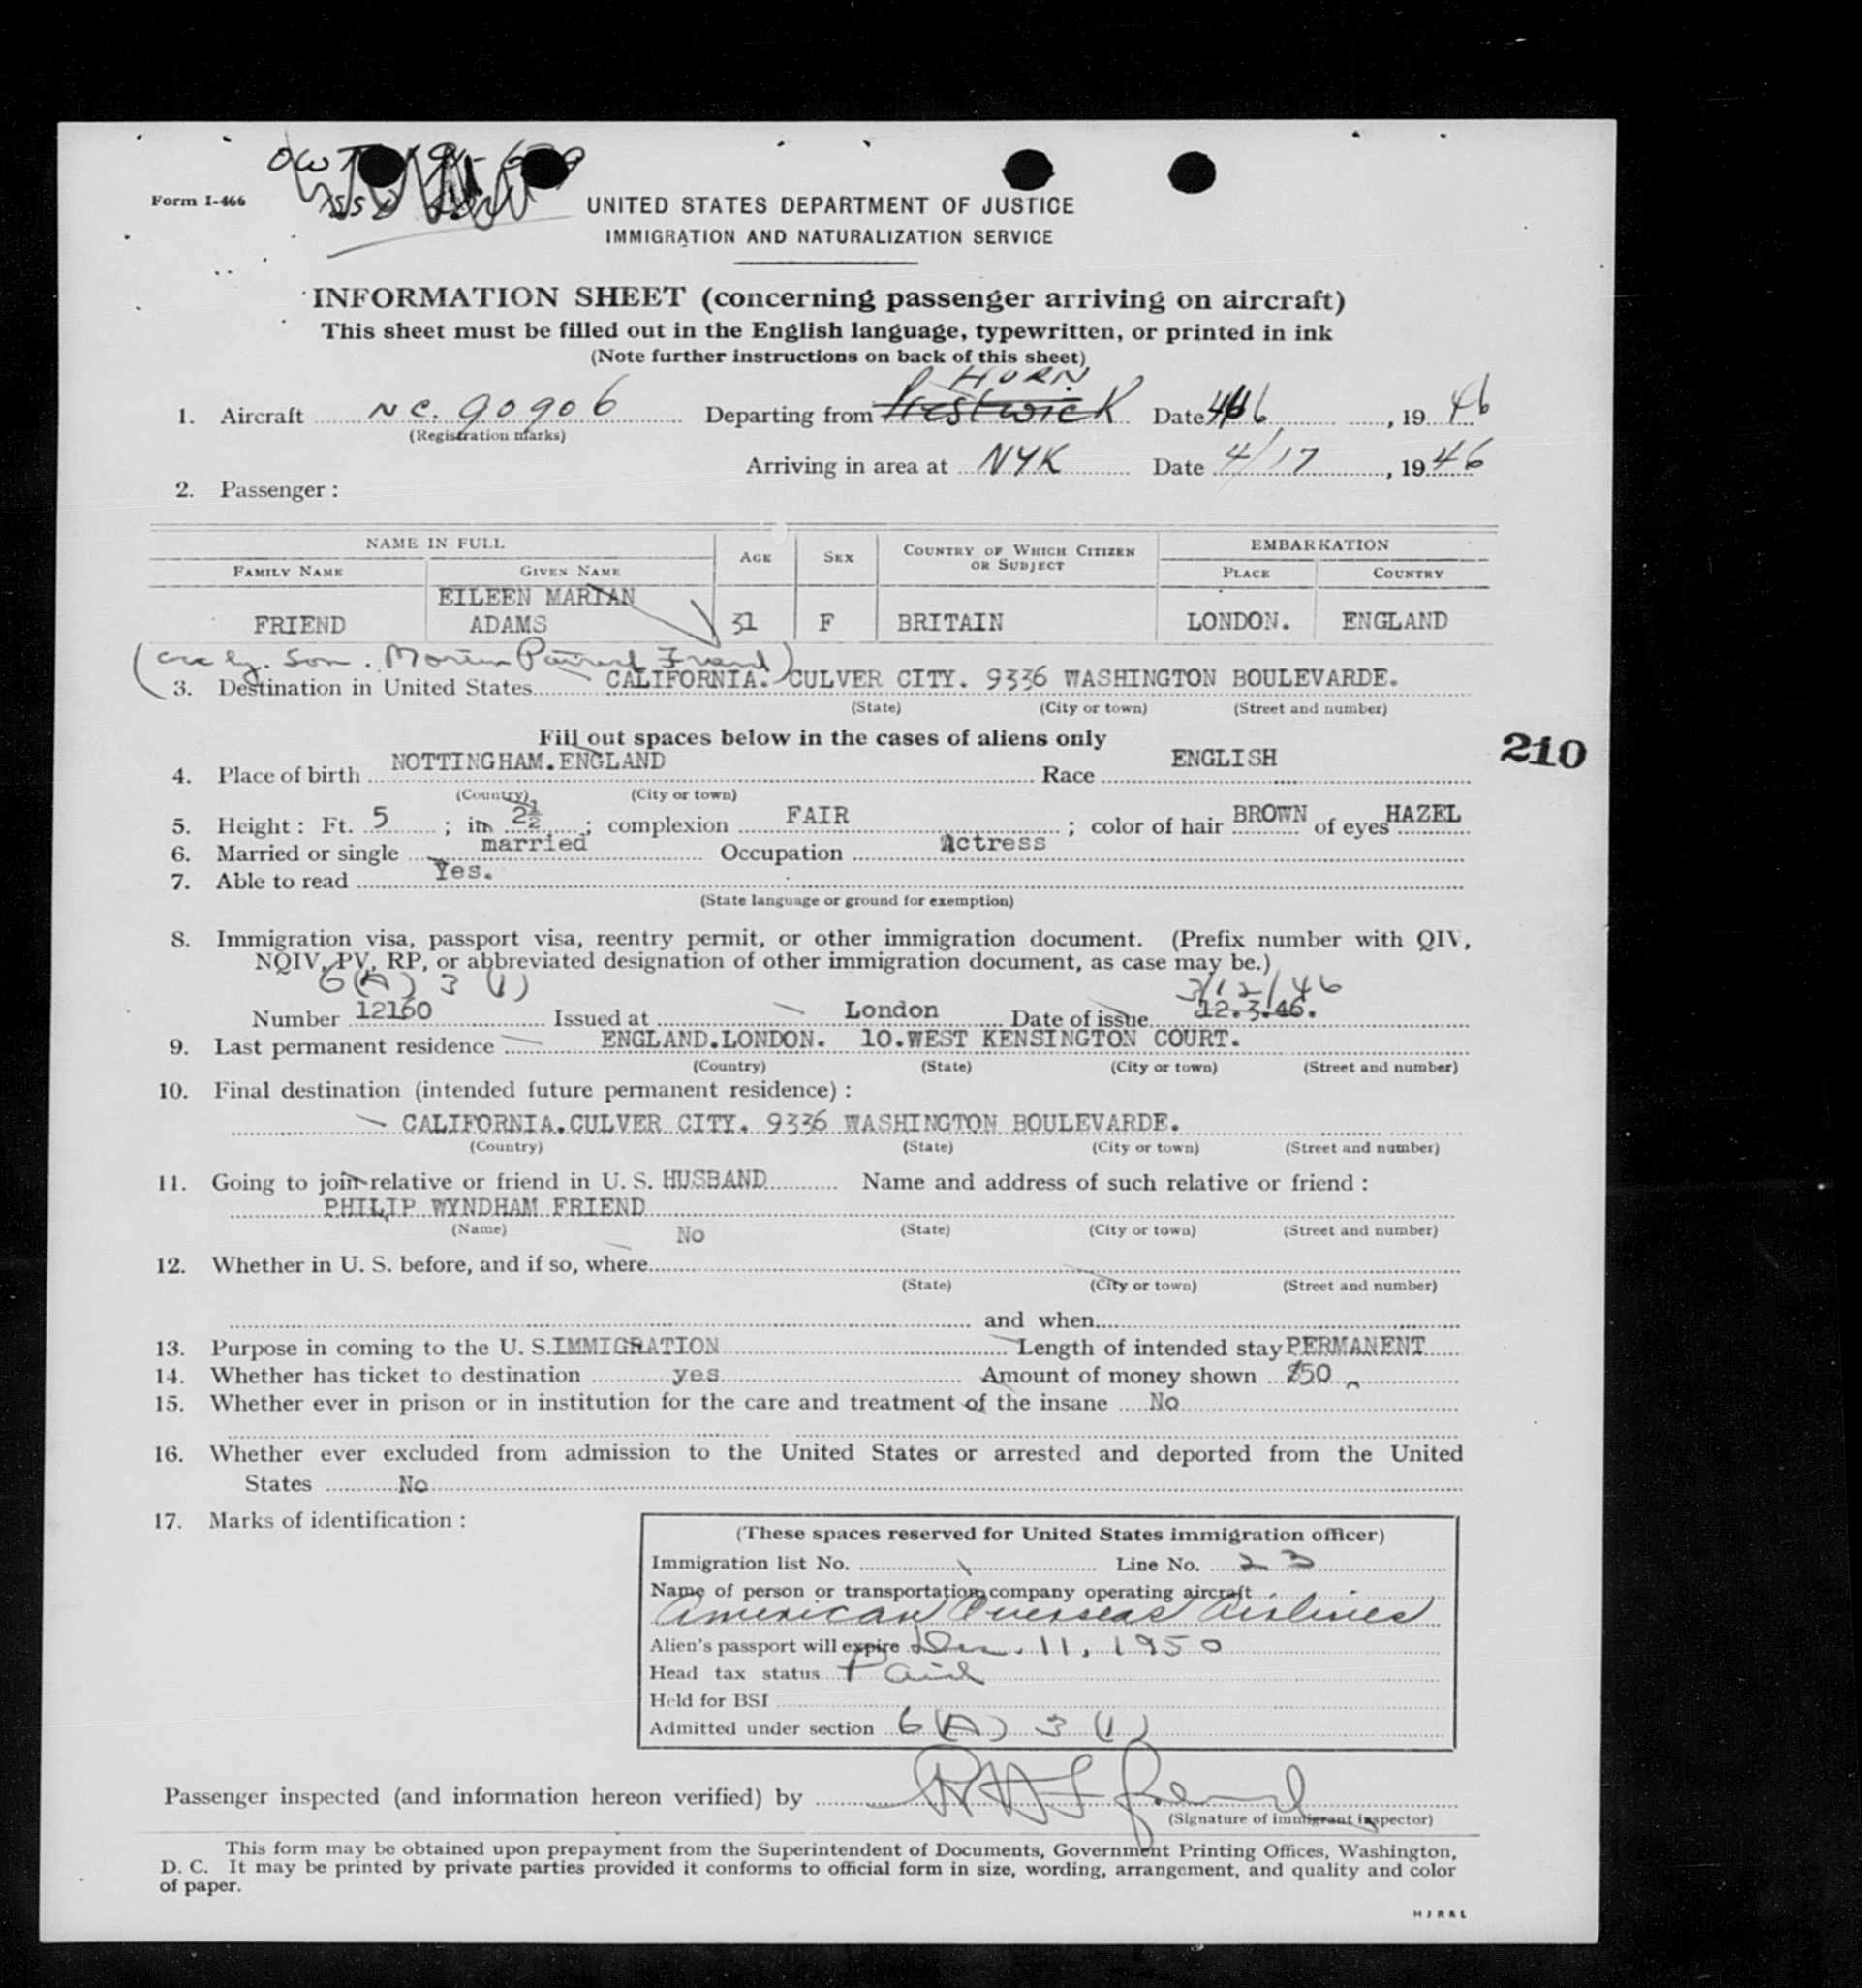 Form I-466
UNITED STATES DEPARTMENT OF JUSTICE
IMMIGRATION AND NATURALIZATION SERVICE
INFORMATION SHEET (concerning passenger arriving on aircraft)
This sheet must be filled out in the English language, typewritten, or printed in ink
(Note further instructions on back of this sheet)
HURN
1. Aircraft NC. 90906 Departing from Prestwick Date 4/16, 1946
(Registration marks)
Arriving in area at NYK Date 4/17, 1946
2. Passenger:
NAME IN FULL AGE SEX COUNTRY OF WHICH CITIZEN OR SUBJECT EMBARKATION
FAMILY NAME GIVEN NAME PLACE COUNTRY
EILEEN MARIAN
FRIEND ADAMS 31 F BRITAIN LONDON. ENGLAND
Son. Friend)
3. Destination in United States CALIFORNIA. CULVER CITY. 9336 WASHINGTON BOULEVARDE.
(State) (City or town) (Street and number)
Fill out spaces below in the cases of aliens only
210
4. Place of birth NOTTINGHAM.ENGLAND Race ENGLISH
(Country) (City or town)
5. Height: Ft. 5; in 2½; complexion FAIR; color of hair BROWN of eyes HAZEL
6. Married or single married Occupation Actress
7. Able to read Yes.
(State language or ground for exemption)
8. Immigration visa, passport visa, reentry permit, or other immigration document. (Prefix number with QIV,
NQIV, PV, RP, or abbreviated designation of other immigration document, as case may be.)
6(A) 3 (1) 3/12/46
Number 12160 Issued at London Date of issue 12.3.46.
9. Last permanent residence ENGLAND.LONDON. 10.WEST KENSINGTON COURT.
(Country) (State) (City or town) (Street and number)
10. Final destination (intended future permanent residence):
CALIFORNIA.CULVER CITY. 9336 WASHINGTON BOULEVARDE.
(Country) (State) (City or town) (Street and number)
11. Going to join relative or friend in U. S. HUSBAND Name and address of such relative or friend:
PHILIP WYNDHAM FRIEND
(Name) (State) (City or town) (Street and number)
No
12. Whether in U. S. before, and if so, where
(State) (City or town) (Street and number)
and when
13. Purpose in coming to the U. S. IMMIGRATION Length of intended stay PERMANENT
14. Whether has ticket to destination yes Amount of money shown $50
15. Whether ever in prison or in institution for the care and treatment of the insane No
16. Whether ever excluded from admission to the United States or arrested and deported from the United
States No
17. Marks of identification:
(These spaces reserved for United States immigration officer)
Immigration list No. Line No. 23
Name of person or transportation company operating aircraft
American Overseas Airlines
Alien's passport will expire Dec. 11, 1950
Head tax status Paid
Held for BSI
Admitted under section 6(A) 3 (1)
Passenger inspected (and information hereon verified) by
(Signature of immigrant inspector)
This form may be obtained upon prepayment from the Superintendent of Documents, Government Printing Offices, Washington,
D. C. It may be printed by private parties provided it conforms to official form in size, wording, arrangement, and quality and color
of paper.